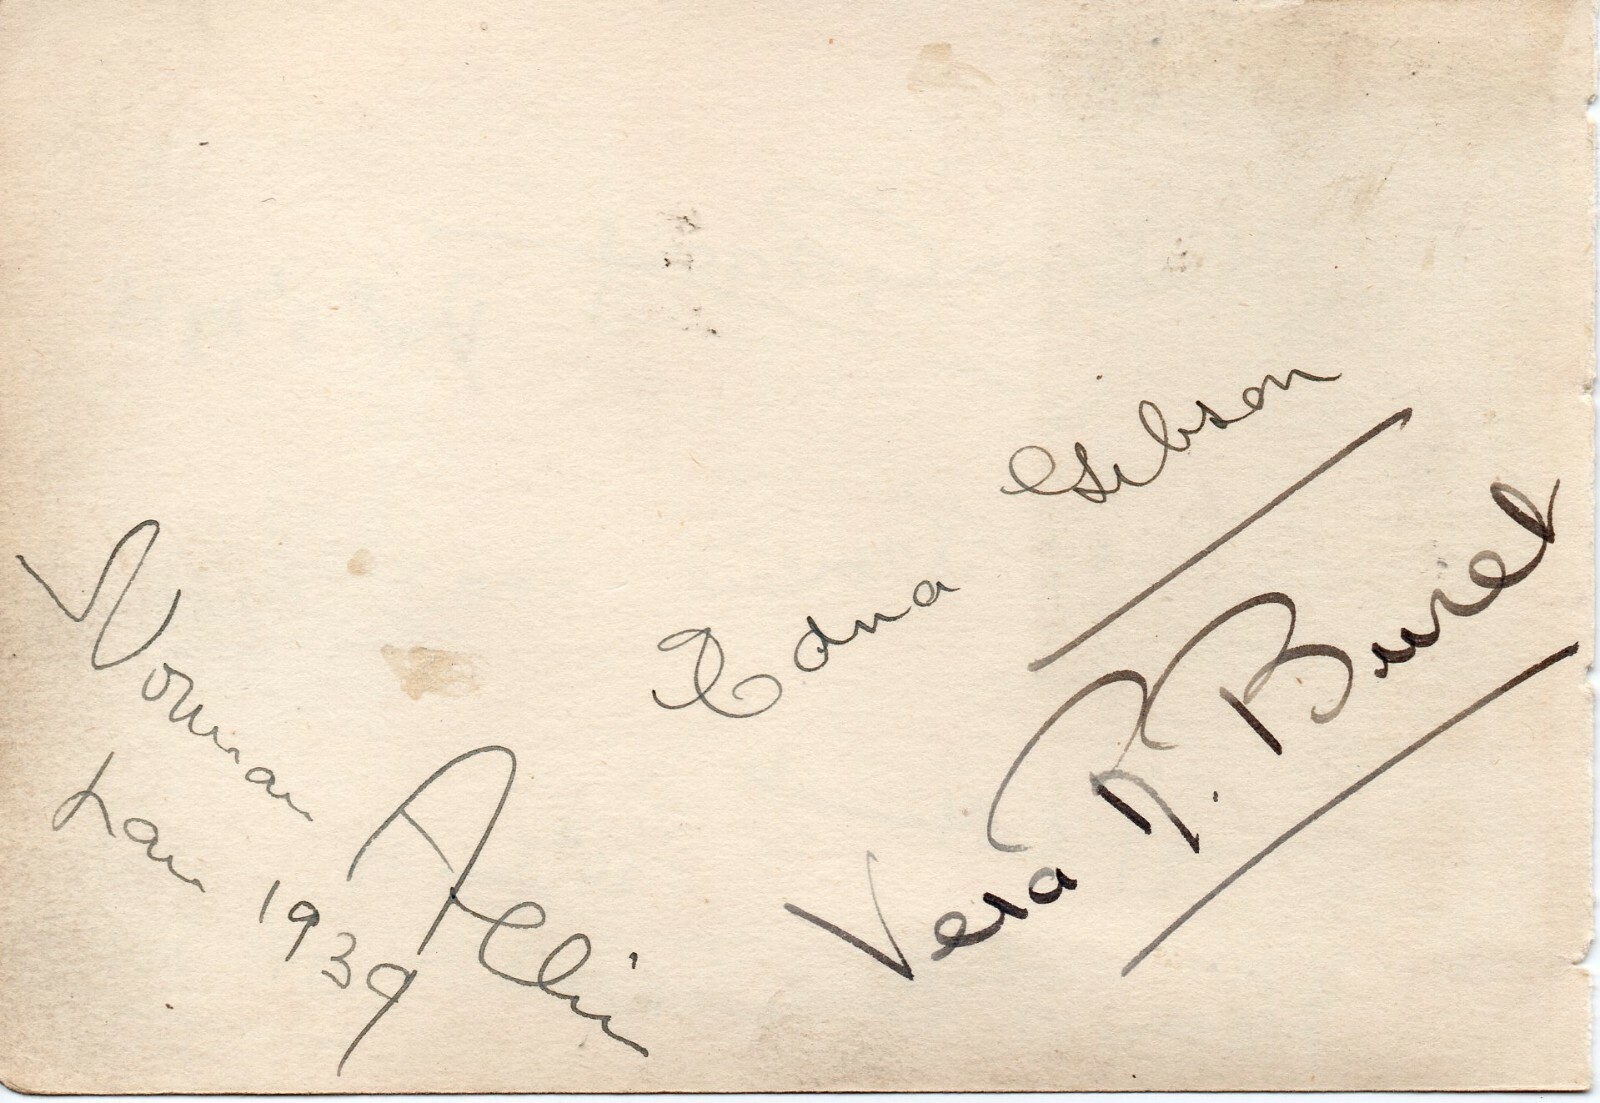 Edna Gibson
Norman Allin
Jan 1939
Vera R. Buriel